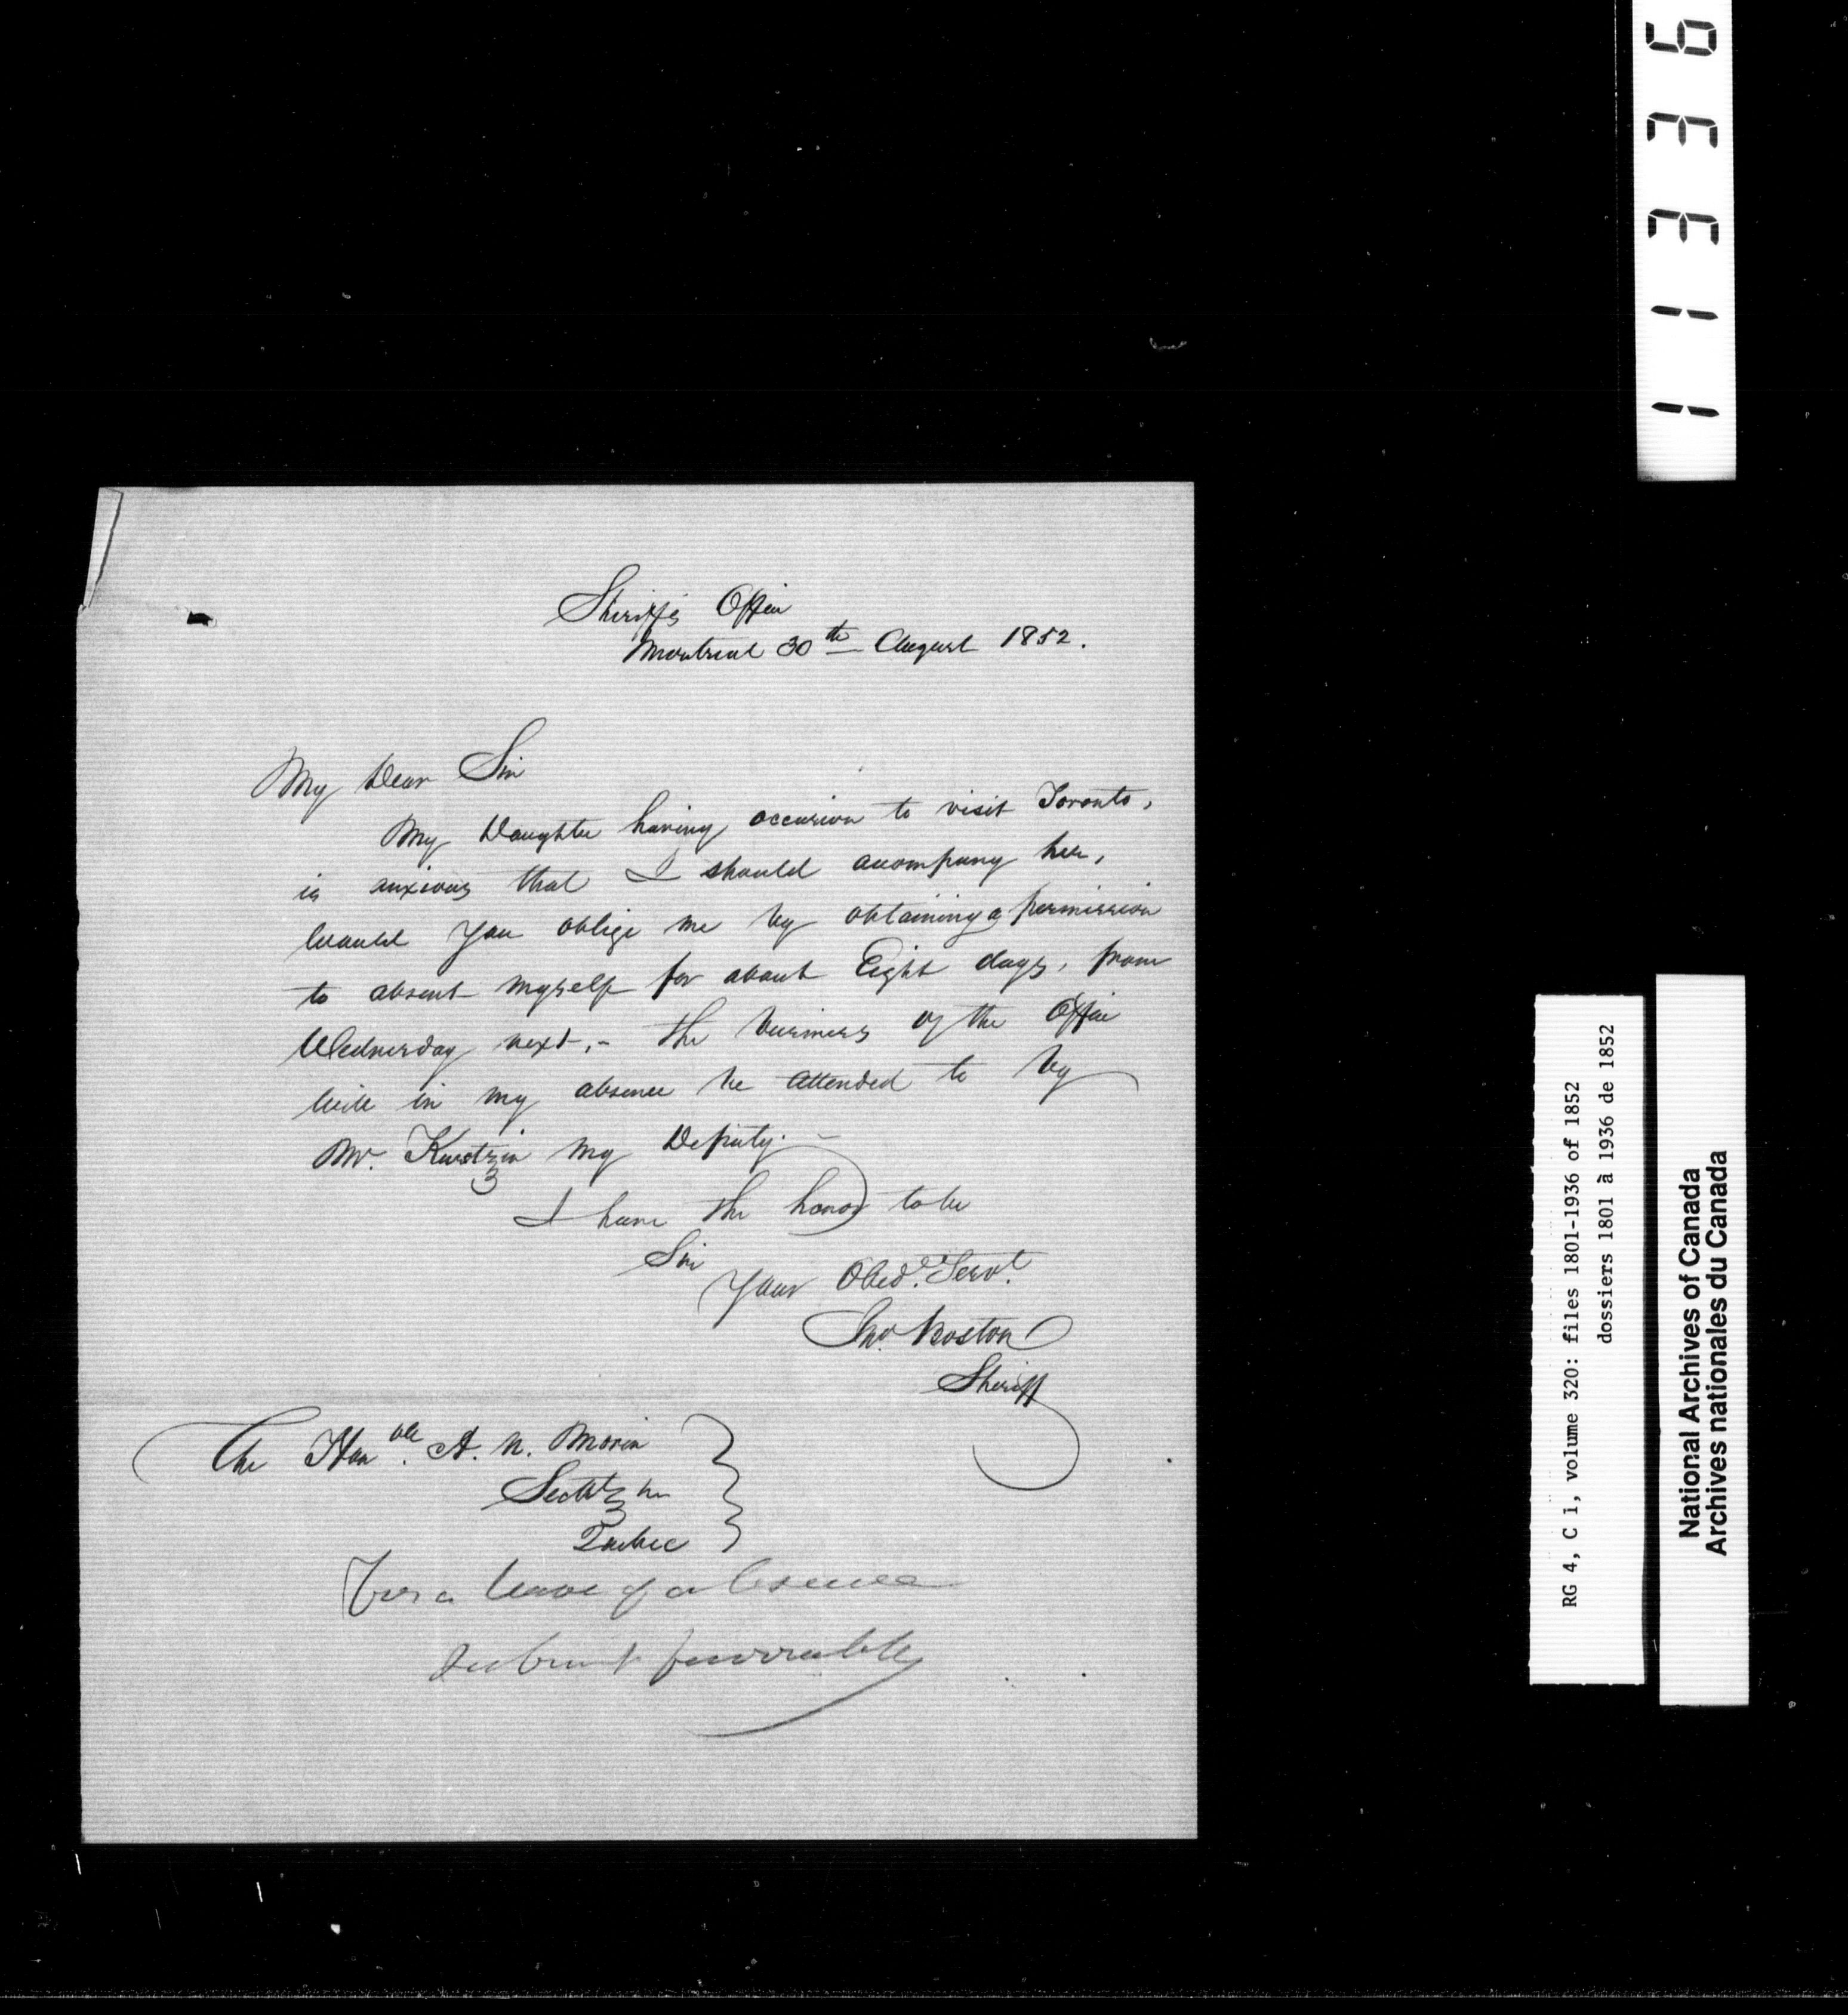 Sheriff's Office
Montreal 30th August 1852.
My Dear Sir
My Daughter having occasion to visit Toronto,
is anxious that I should accompany her,
Would you oblige me by obtaining a permission
to absent myself for about Eight days, from
Wednesday next,- The business of the Office
will in my absence be attended to by
Mr. my Deputy.-
I have the honor to be
Sir
Your Obed. Servt.
Jno. Boston
Sheriff
The Honble. A. N. Morin
Quebec
For a leave of absence
Submit favorably
11336
RG 4, C 1, volume 320: files 1801-1936 of 1852
dossiers 1801 à 1936 de 1852
National Archives of Canada
Archives nationales du Canada